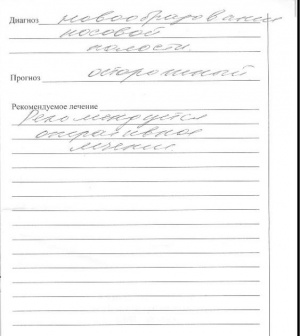 Диагноз новообразование
носовой
полости
Прогноз осторожный
Рекомендуемое лечение
Рекомендуется
оперативное
лечение.